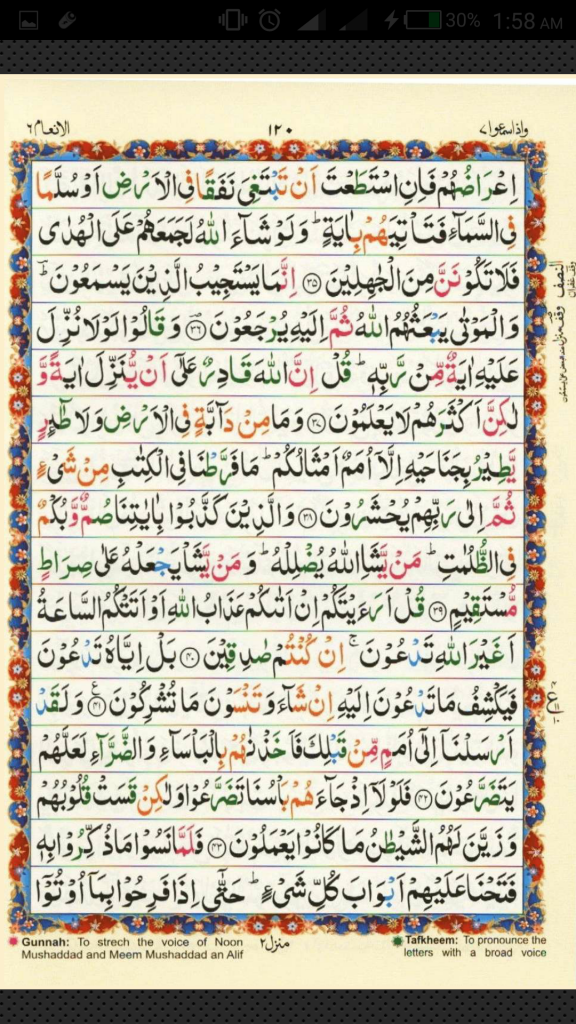 30% 1:58 AM
واذاسمعوا٧
١٢٠
الانعام٦
اِعْرَاضُهُمْ فَاِنِ اسْتَطَعْتَ اَنْ تَبْتَغِیَ نَفَقًا فِی الْاَرْضِ اَوْ سُلَّمًا
فِی السَّمَآءِ فَتَاْتِیَهُمْ بِاٰیَةٍ ؕ وَ لَوْ شَآءَ اللّٰهُ لَجَمَعَهُمْ عَلَی الْهُدٰی
فَلَا تَكُوْنَنَّ مِنَ الْجٰهِلِیْنَ ﴿۳۵﴾ اِنَّمَا یَسْتَجِیْبُ الَّذِیْنَ یَسْمَعُوْنَ ؕ
وَ الْمَوْتٰی یَبْعَثُهُمُ اللّٰهُ ثُمَّ اِلَیْهِ یُرْجَعُوْنَ ﴿۳۶﴾ وَ قَالُوْا لَوْ لَا نُزِّلَ
عَلَیْهِ اٰیَةٌ مِّنْ رَّبِّهٖ ؕ قُلْ اِنَّ اللّٰهَ قَادِرٌ عَلٰۤی اَنْ یُّنَزِّلَ اٰیَةً وَّ
لٰكِنَّ اَكْثَرَهُمْ لَا یَعْلَمُوْنَ ﴿۳۷﴾ وَ مَا مِنْ دَآبَّةٍ فِی الْاَرْضِ وَ لَا طٰٓئِرٍ
یَّطِیْرُ بِجَنَاحَیْهِ اِلَّاۤ اُمَمٌ اَمْثَالُكُمْ ؕ مَا فَرَّطْنَا فِی الْكِتٰبِ مِنْ شَیْءٍ
ثُمَّ اِلٰی رَبِّهِمْ یُحْشَرُوْنَ ﴿۳۸﴾ وَ الَّذِیْنَ كَذَّبُوْا بِاٰیٰتِنَا صُمٌّ وَّ بُكْمٌ
فِی الظُّلُمٰتِ ؕ مَنْ یَّشَاِ اللّٰهُ یُضْلِلْهُ ؕ وَ مَنْ یَّشَاْ یَجْعَلْهُ عَلٰی صِرَاطٍ
مُّسْتَقِیْمٍ ﴿۳۹﴾ قُلْ اَرَءَیْتَكُمْ اِنْ اَتٰىكُمْ عَذَابُ اللّٰهِ اَوْ اَتَتْكُمُ السَّاعَةُ
اَغَیْرَ اللّٰهِ تَدْعُوْنَ ۚ اِنْ كُنْتُمْ صٰدِقِیْنَ ﴿۴۰﴾ بَلْ اِیَّاهُ تَدْعُوْنَ
فَیَكْشِفُ مَا تَدْعُوْنَ اِلَیْهِ اِنْ شَآءَ وَ تَنْسَوْنَ مَا تُشْرِكُوْنَ ﴿۴۱﴾ وَ لَقَدْ
اَرْسَلْنَاۤ اِلٰۤی اُمَمٍ مِّنْ قَبْلِكَ فَاَخَذْنٰهُمْ بِالْبَاْسَآءِ وَ الضَّرَّآءِ لَعَلَّهُمْ
یَتَضَرَّعُوْنَ ﴿۴۲﴾ فَلَوْ لَاۤ اِذْ جَآءَهُمْ بَاْسُنَا تَضَرَّعُوْا وَ لٰكِنْ قَسَتْ قُلُوْبُهُمْ
وَ زَیَّنَ لَهُمُ الشَّیْطٰنُ مَا كَانُوْا یَعْمَلُوْنَ ﴿۴۳﴾ فَلَمَّا نَسُوْا مَا ذُكِّرُوْا بِهٖ
فَتَحْنَا عَلَیْهِمْ اَبْوَابَ كُلِّ شَیْءٍ ؕ حَتّٰۤی اِذَا فَرِحُوْا بِمَاۤ اُوْتُوْۤا
النصف
وقف غفران
ع
منزل٢
Gunnah: To strech the voice of Noon
Mushaddad and Meem Mushaddad an Alif
Tafkheem: To pronounce the
letters with a broad voice